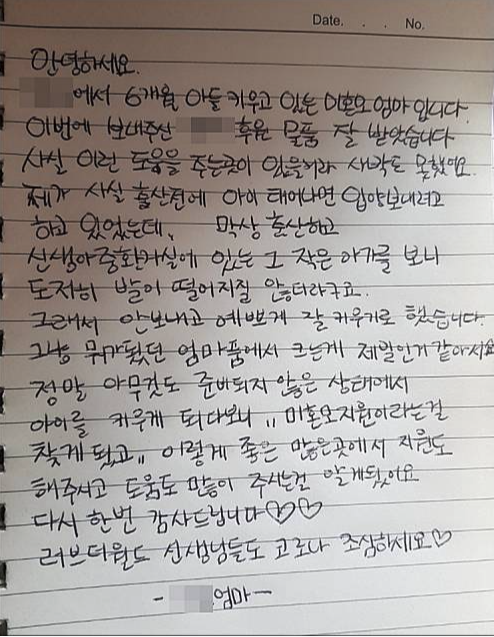 Date. . . No.
안녕하세요.
에서 6개월 아들 키우고 있는 미혼모 엄마 입니다.
이번에 보내주신 후원 물품 잘 받았습니다
사실 이런 도움을 주는곳이 있을거라 생각도 못했어요.
제가 사실 출산전에 아이 태어나면 입양보내려고
하고 있었는데, 막상 출산하고
신생아중환자실에 있는 그 작은 아가를 보니
도저히 발이 떨어지질 않더라구요.
그래서 안보내고 예쁘게 잘 키우기로 했습니다.
그냥 뭐가됐던 엄마품에서 크는게 제일인거 같아서요
정말 아무것도 준비되지 않은 상태에서
아이를 키우게 되다보니,, 미혼모지원이라는걸
찾게 됐고,, 이렇게 좋은 많은곳에서 지원도
해주시고 도움도 많이 주시는걸 알게됬어요
다시 한번 감사드립니다♡♡
러브더월드 선생님들도 코로나 조심하세요♡
- 엄마-